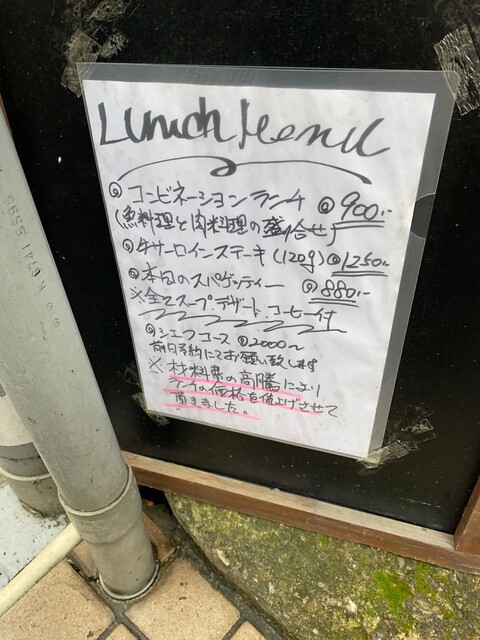 Lunch Menu
◎コンビネーションランチ @900.-
(魚料理と肉料理の盛合せ)
◎牛サーロインステーキ(120g)@1250.-
◎本日のスパゲッティー @880.-
※全てスープ、デザート、コーヒー付
◎シェフコース @2000〜
前日予約にてお願い致します
※材料費の高騰により
ランチの価格を値上げさせて
頂きました。